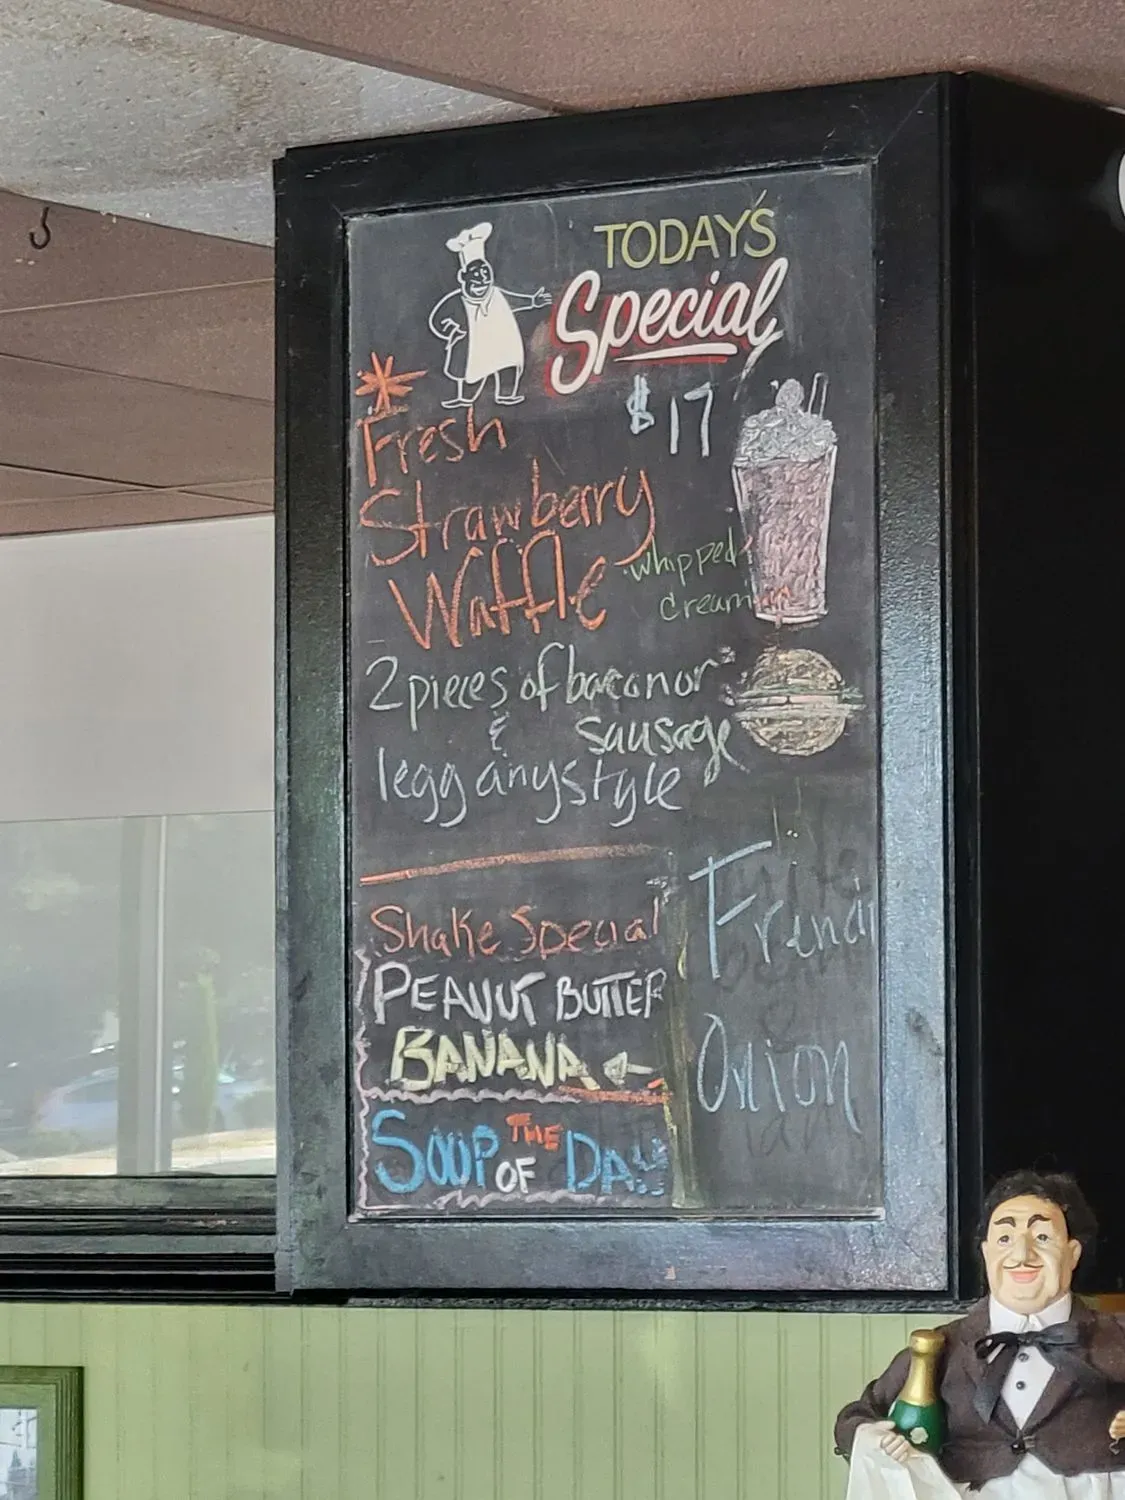 TODAY'S
Special
$17
Fresh
Strawberry
Waffle
whipped
cream
2 pieces of bacon or
& sausage
1 egg any style
Shake Special
PEANUT BUTTER
BANANA
SOUP OF THE DAY
French
Onion